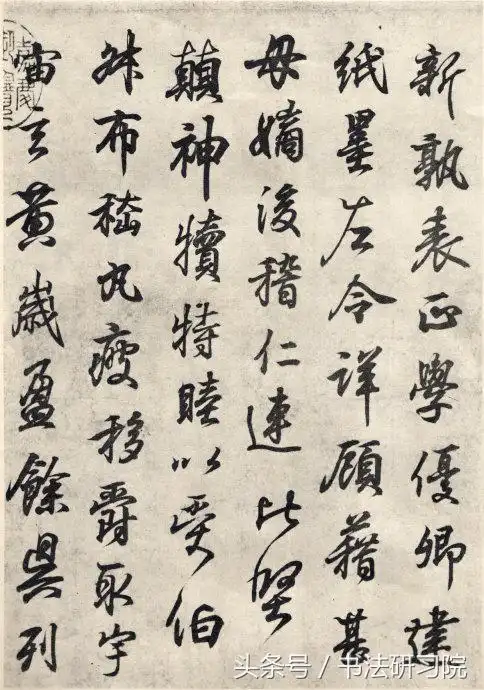 新孰表正學優卿建
紙墨左令詳顧藉甚
母嫡後稽仁連比堅
顛神犢特睦以受伯
叔布嵇丸疲移爵取宇
宙玄黃歲盈餘具列
头条号 / 书法研习院